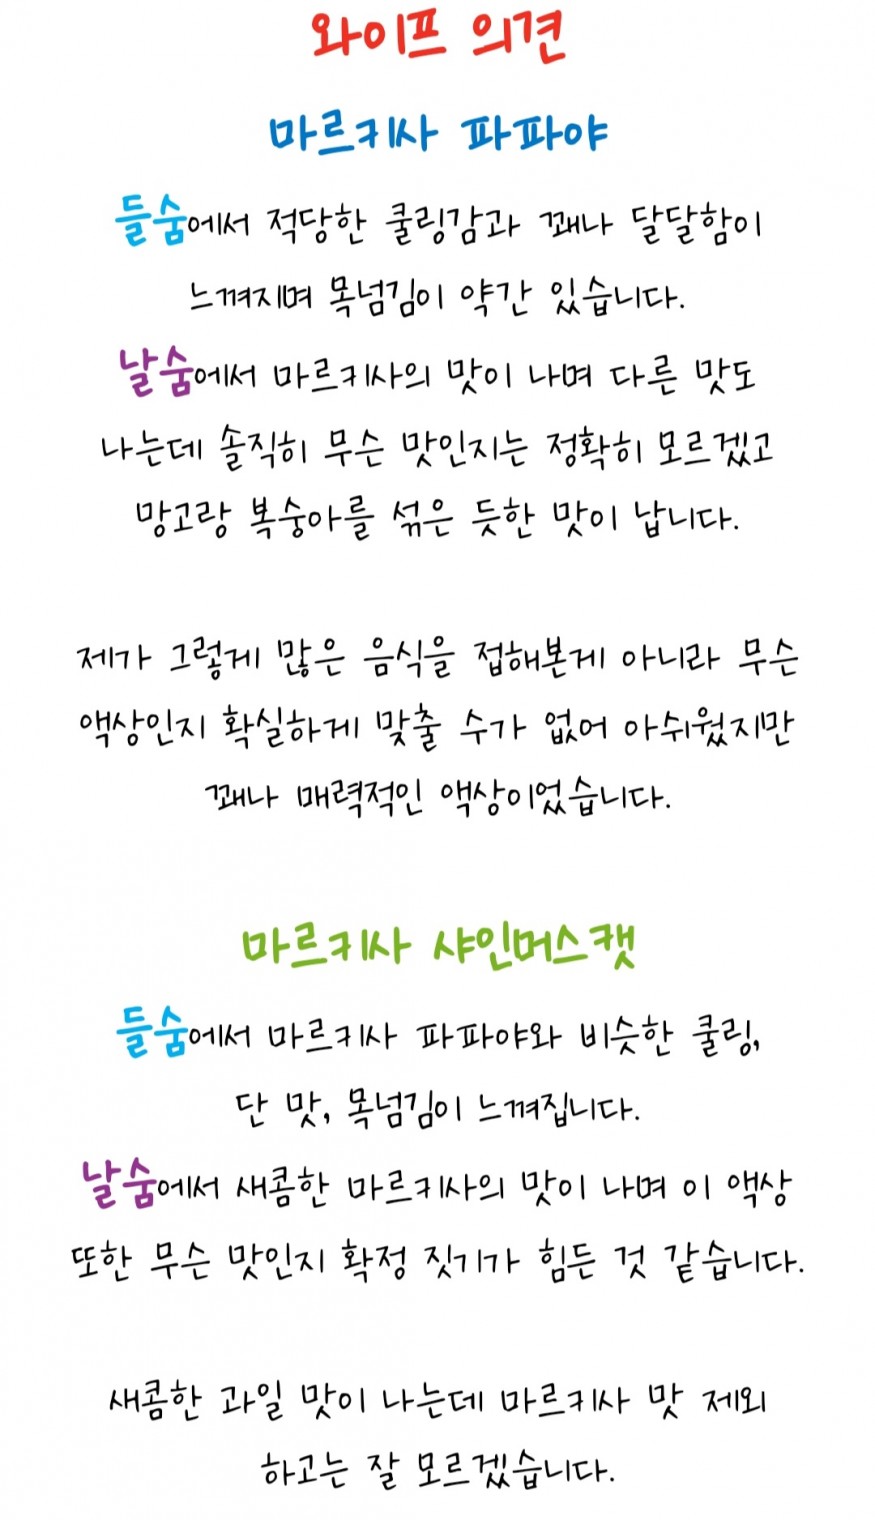 와이프 의견
마르키사 파파야
들숨에서 적당한 쿨링감과 꽤나 달달함이
느껴지며 목넘김이 약간 있습니다.
날숨에서 마르키사의 맛이 나며 다른 맛도
나는데 솔직히 무슨 맛인지는 정확히 모르겠고
망고랑 복숭아를 섞은 듯한 맛이 납니다.
제가 그렇게 많은 음식을 접해본게 아니라 무슨
액상인지 확실하게 맞출 수가 없어 아쉬웠지만
꽤나 매력적인 액상이었습니다.
마르키사 샤인머스캣
들숨에서 마르키사 파파야와 비슷한 쿨링,
단 맛, 목넘김이 느껴집니다.
날숨에서 새콤한 마르키사의 맛이 나며 이 액상
또한 무슨 맛인지 확정 짓기가 힘든 것 같습니다.
새콤한 과일 맛이 나는데 마르키사 맛 제외
하고는 잘 모르겠습니다.